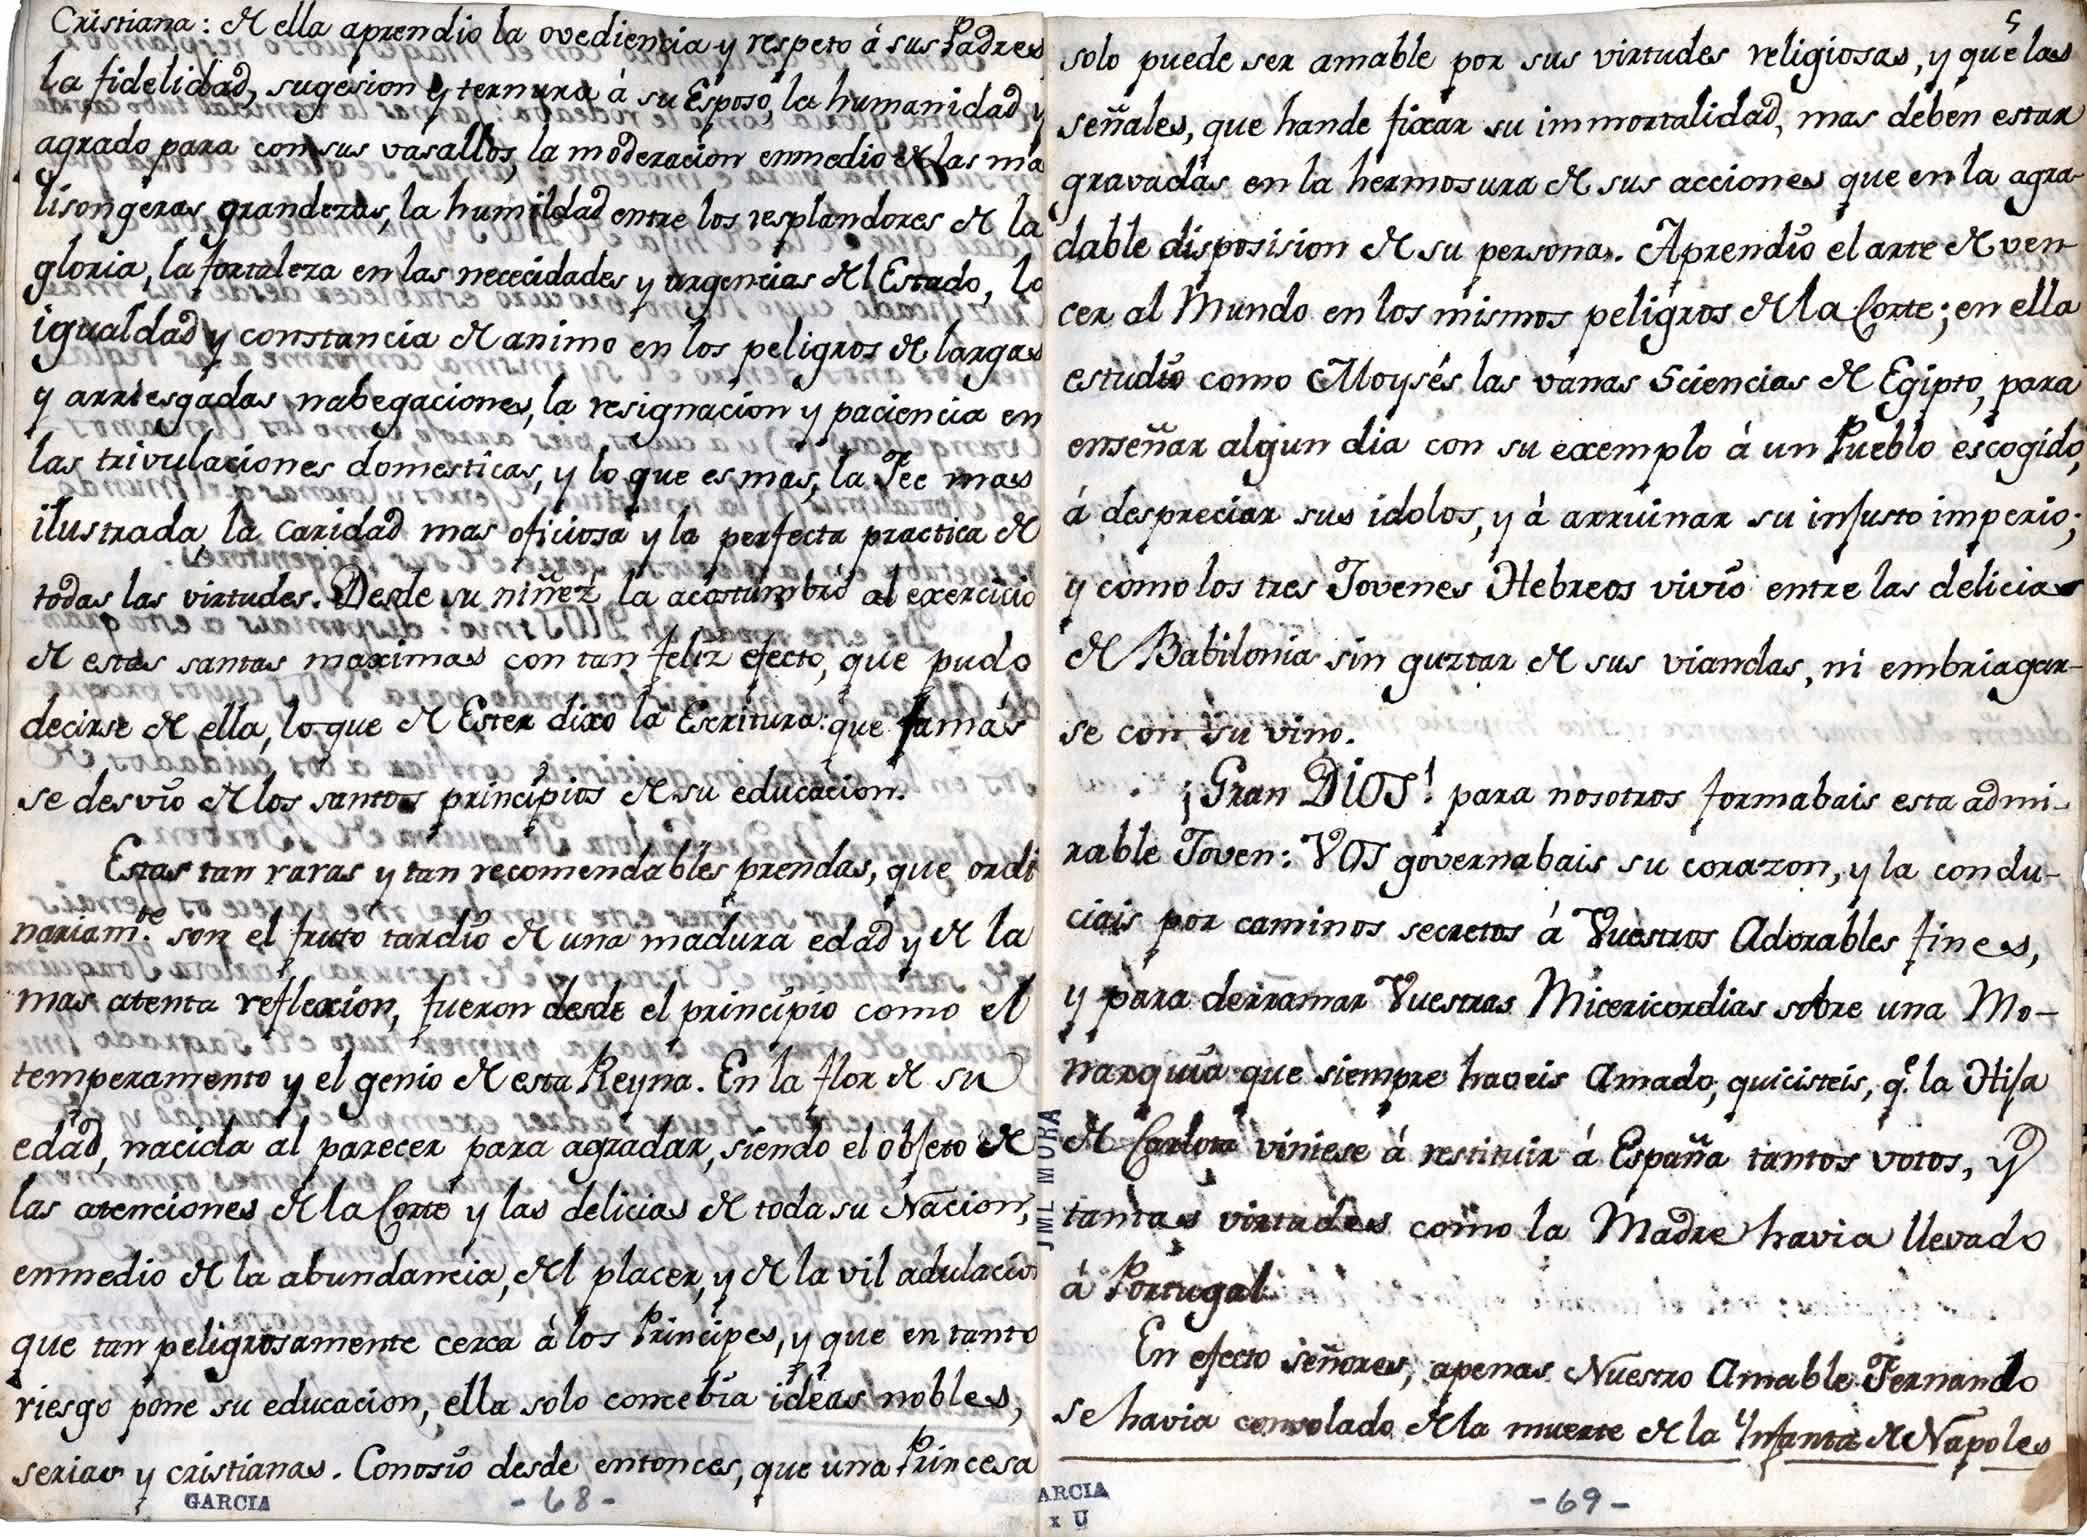 Cristiana: de ella aprendio la ovediencia y respeto á sus Padres
la fidelidad, sugesion y ternura á su Esposo, la humanidad y
agrado para con sus vasallos, la moderacion enmedio de las ma
lisongeras grandezas, la humildad entre los resplandores de la
gloria, la fortaleza en las nececidades y urgencias del Estado, la
igualdad y constancia de animo en los peligros de largas
y arriesgadas nabegaciones, la resignacion y paciencia en
las trivulaciones domesticas, y lo que es mas, la Fee mas
ilustrada, la caridad mas oficiosa y la perfecta practica de
todas las virtudes. Desde su niñez la acostumbró al exercicio
de estas santas maximas con tan feliz efecto, que pudo
decirse de ella, lo que de Ester dixo la Escritura: que jamás
se desvió de los santos principios de su educacion.
Estas tan raras y tan recomendables prendas, que ordi
nariam.te son el fruto tardío de una madura edad y de la
mas atenta reflexion, fueron desde el principio como el
temperamento y el genio de esta Reyna. En la flor de su
edad, nacida al parecer para agradar, siendo el objeto de
las atenciones de la Corte y las delicias de toda su Nacion,
enmedio de la abundancia, del placer, y de la vil adulacio
que tan peligrosamente cerca á los Principes, y que en tanto
riesgo pone su educacion, ella solo concebía ideas nobles,
serias y cristianas. Conosió desde entonces, que una Princesa
GARCIA
- 68 -
5
solo puede ser amable por sus virtudes religiosas, y que las
señales, que hande fixar su immortalidad, mas deben estar
gravadas en la hermosura de sus acciones que en la agra-
dable disposision de su persona. Aprendió el arte de ven-
cer al Mundo en los mismos peligros de la Corte; en ella
estudió como Moysés las vanas Sciencias de Egipto, para
enseñar algun dia con su exemplo á un Pueblo escogido,
á despreciar sus idolos, y á arruinar su injusto imperio;
y como los tres Jovenes Hebreos vivió entre las delicias
de Babilonia sin guztar de sus viandas, ni embriagar-
se con su vino.
¡Gran DIOS! para nosotros formabais esta admi-
rable Joven: VOS governabais su corazon, y la condu-
ciais por caminos secretos á Vuestros Adorables fines,
y para derramar Vuestras Micericordias sobre una Mo-
narquía que siempre haveis Amado, quicisteis, q.e la Hija
de Carlota viniese á restituir á España tantos votos, y
tantas virtudes como la Madre havia llevado
á Portugal.
En efecto señores, apenas Nuestro Amable Fernando
se havia consolado de la muerte de la Ynfanta de Napoles
JML MORA
ARCIA
x U
- 69 -